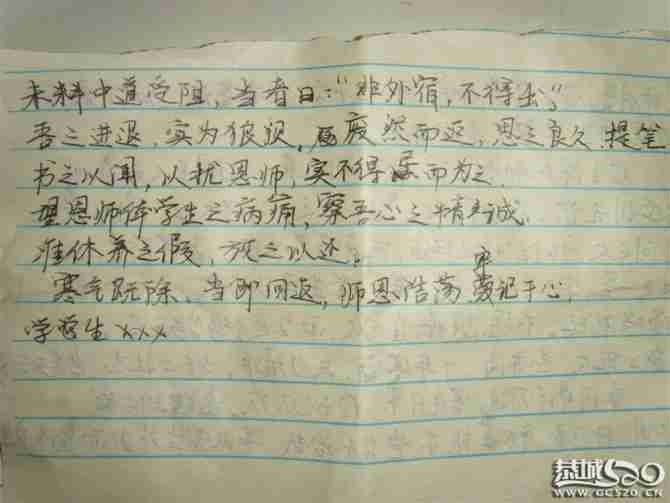 未料中道受阻，当者曰："非外宿，不得出。"
吾之进退，实为狼狈，废然而返，思之良久，提笔
书之以闻，以扰恩师，实不得已而为之。
望恩师体学生之病痛，察吾心之精诚，
准休养之假，放之以还。
寒气既除，当即回返，师恩浩荡牢记于心。
学生xxx
恭城520
WWW.GC520.CN